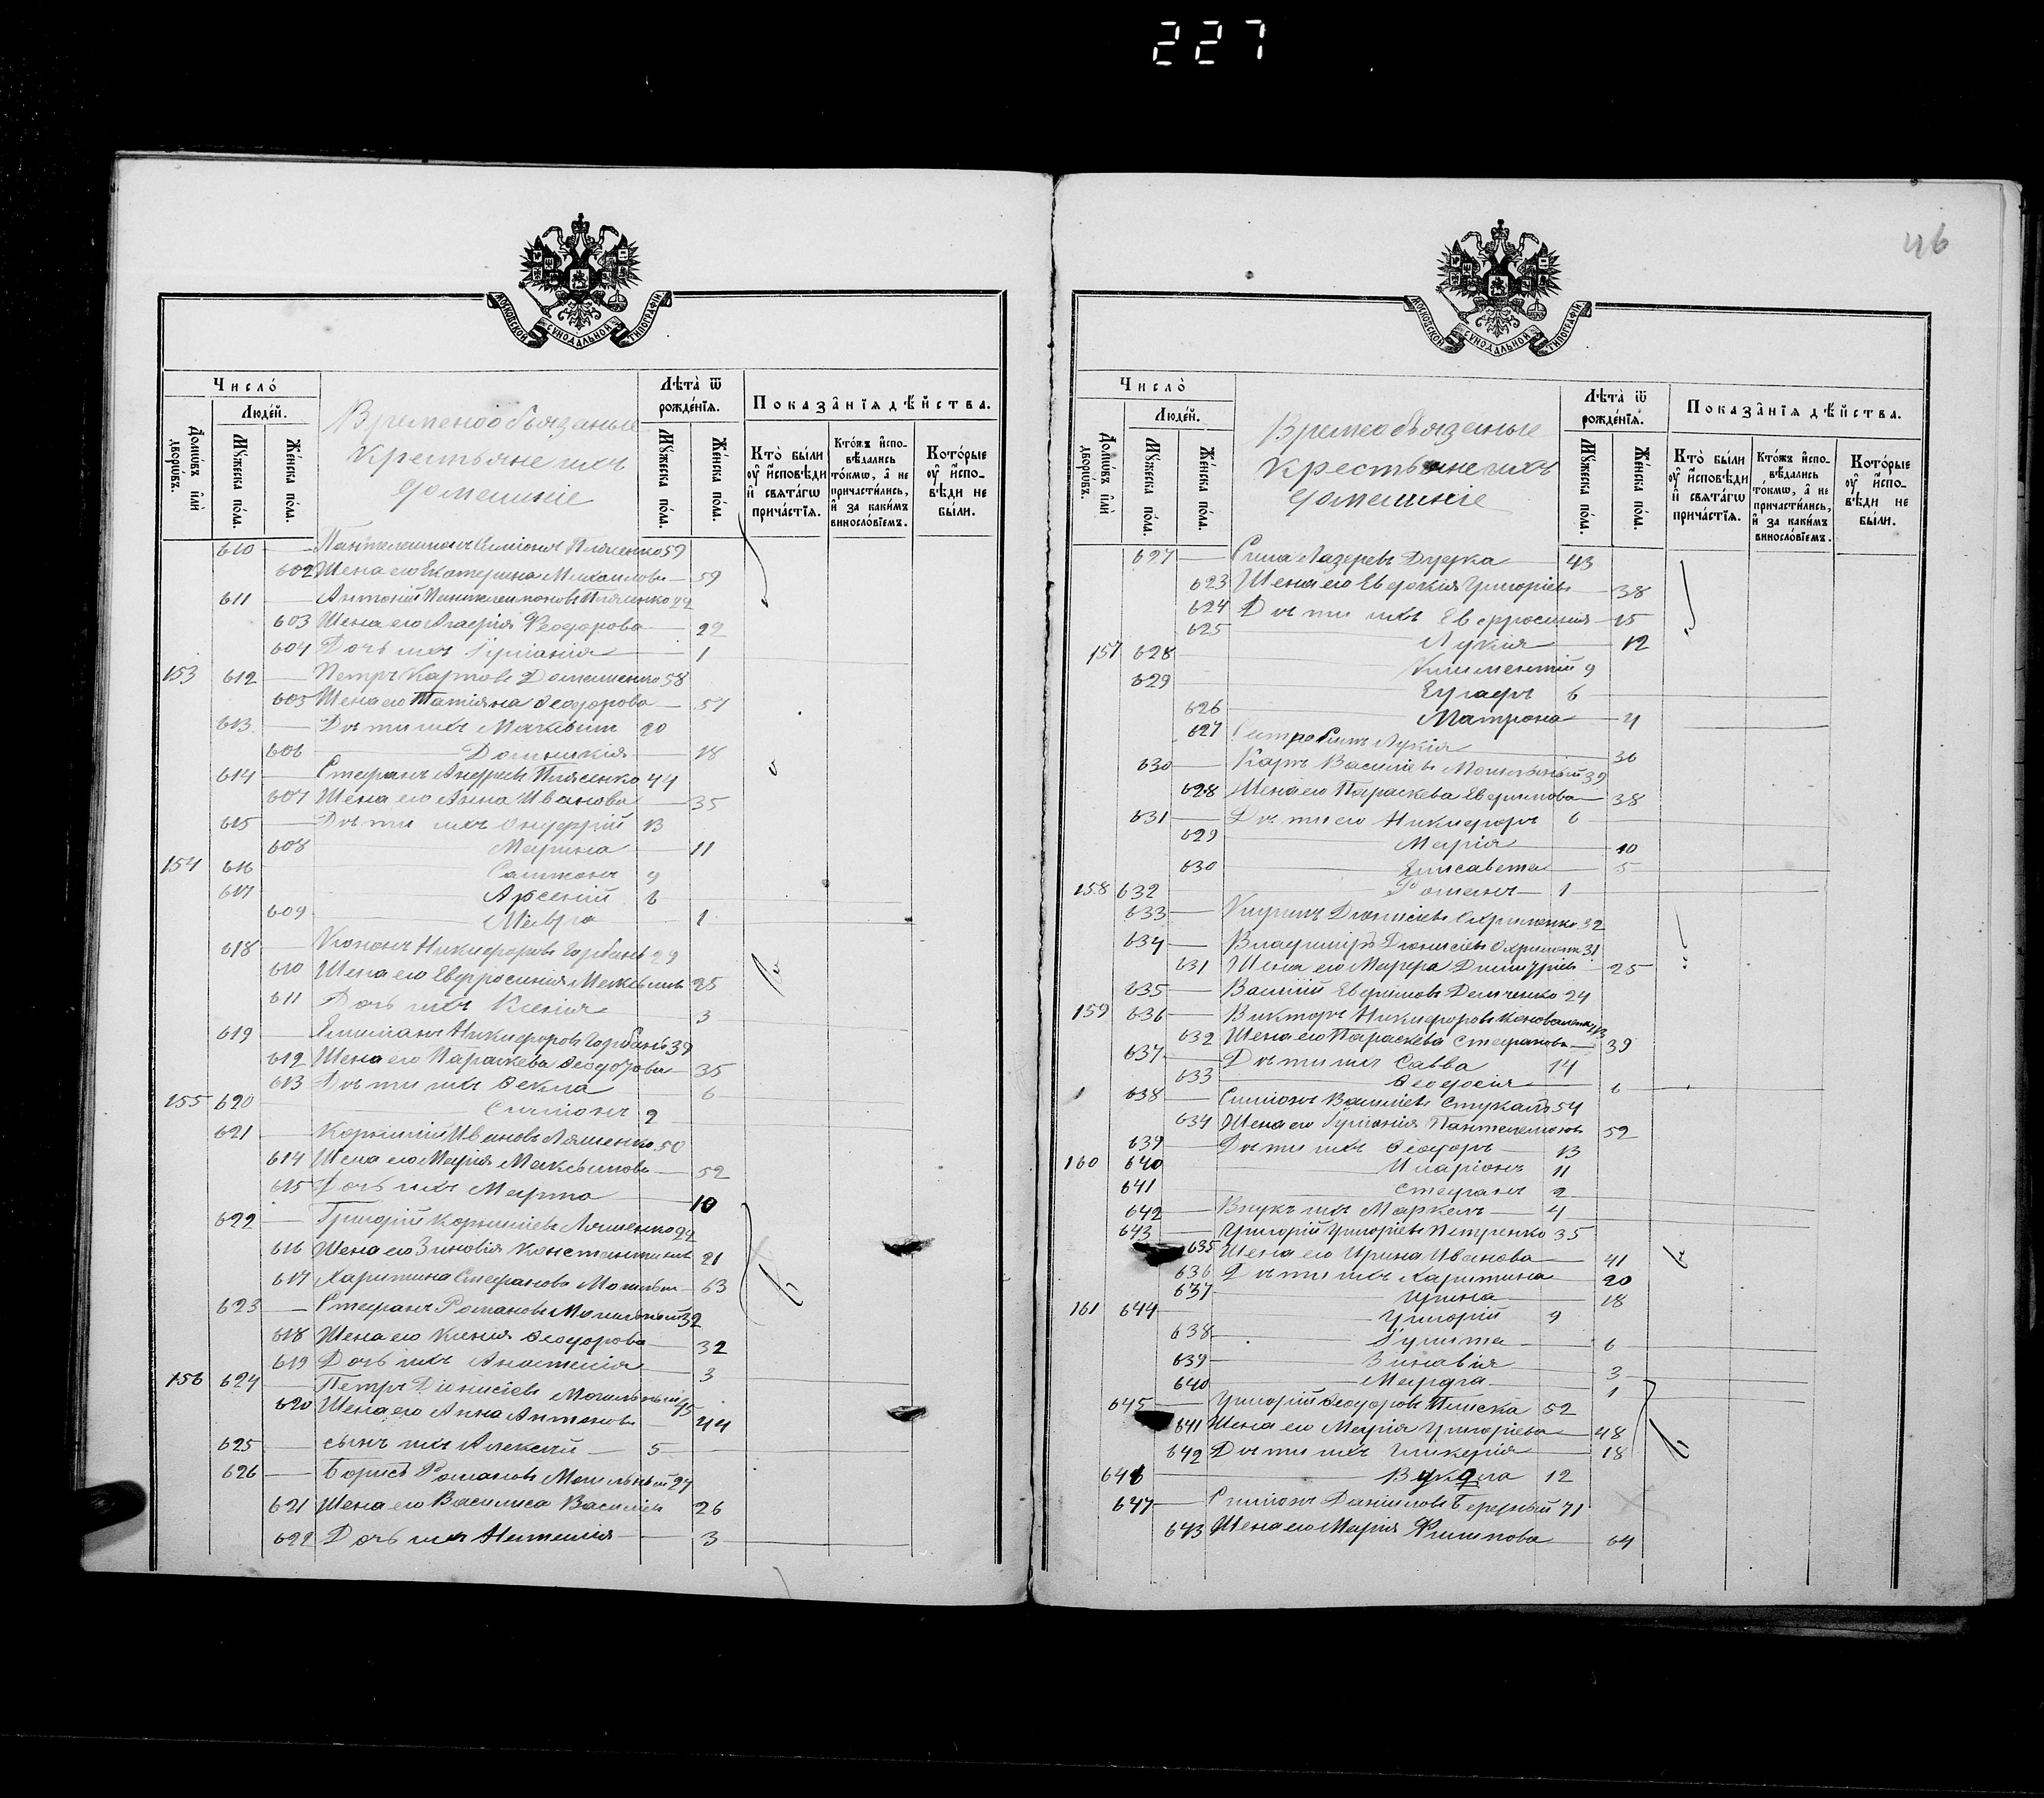 227
46
МОСКОВСКОЙ СѴНОДАЛЬНОЙ ТИПОГРАФІИ
Число́
Люде́й.
Домѡ́въ и҆лѝ дворѡ́въ.
Мꙋ́жеска по́ла.
Же́нска по́ла.
Временообязаные
Крестьяне ихъ
домашніе
Лѣ́та ѿ рожде́нїѧ.
Мꙋ́жеска по́ла.
Же́нска по́ла.
Показа̑нїѧ дѣ́йства.
Кто̀ бы́ли оу҆ и҆сповѣ́ди и҆ свѧта́гѡ причⷭ҇тїѧ.
Кто́жъ и҆сповѣ́дались то́кмѡ, а҆ не причасти́лись, и҆ за каки́мъ винословїемъ.
Кото́рые оу҆ и҆сповѣ́ди не бы́ли.
610 Пантелеимонъ Симіоновъ Плясенко 59
602 Жена его Екатерина Михаилова 59
611 Антоній Пантелеимоновъ Плясенко 22
603 Жена его Агафія Феодорова 22
604 Дочь ихъ Іуліанія 1
153 612 Петръ Карповъ Домашенко 58
605 Жена его Татіяна Ѳеодорова 57
613 Дѣти ихъ Максимъ 20
606 Домникія 18
614 Стефанъ Андреевъ Плясенко 44
607 Жена его Анна Иванова 35
615 Дѣти ихъ Онуфрій 13
608 Марина 11
154 616 Сампсонъ 9
617 Арсеній 6
609 Мавра 1
618 Кононъ Никифоровъ Горбань 29
610 Жена его Евфросинія Максим 25
611 Дочь ихъ Ксенія 3
619 Емиліанъ Никифоровъ Горбань 39
612 Жена его Параскева Ѳеодорова 35
613 Дѣти ихъ Ѳекла 6
155 620 Симіонъ 2
621 Корнилій Ивановъ Ляшенко 50
614 Жена его Марія Максимова 52
615 Дочь ихъ Марѳа 10
622 Григорій Корниліевъ Ляшенко 22
616 Жена его Зиновія Константинов 21
617 Харитина Стефанова Могильн 63
623 Стефанъ Романовъ Могильный 32
618 Жена его Ксенія Ѳеодорова 32
619 Дочь ихъ Анастасія 3
156 624 Петръ Діонисіевъ Могильный 45
620 Жена его Анна Антонова 44
625 сынъ ихъ Алексій 5
626 Борисъ Романовъ Могильный 27
621 Жена его Василиса Василіев 26
622 Дочь ихъ Наталія 3
МОСКОВСКОЙ СѴНОДАЛЬНОЙ ТИПОГРАФІИ
Число́
Люде́й.
Домѡ́въ и҆лѝ дворѡ́въ.
Мꙋ́жеска по́ла.
Же́нска по́ла.
Времеобязаные
Крестьяне ихъ
домашніе
Лѣ́та ѿ рожде́нїѧ.
Мꙋ́жеска по́ла.
Же́нска по́ла.
Показа̑нїѧ дѣ́йства.
Кто̀ бы́ли оу҆ и҆сповѣ́ди и҆ свѧта́гѡ причⷭ҇тїѧ.
Кто́жъ и҆сповѣ́дались то́кмѡ, а҆ не причасти́лись, и҆ за каки́мъ винословїемъ.
Кото́рые оу҆ и҆сповѣ́ди не бы́ли.
627 Сила Лазаревъ Дудка 43
623 Жена его Евдокія Григоріев 38
624 Дѣти ихъ Евфросинія 15
625 Лукія 12
157 628 Климентій 9
629 Евграфъ 6
626 Матрона 4
627 Сестра Силы Лукія 36
630 Карпъ Василіевъ Могильный 39
628 Жена его Параскева Евфимова 38
631 Дѣти его Никифоръ 6
629 Марія 10
630 Елисавета 5
158 632 Романъ 1
633 Кирилъ Діонисіевъ Охрименко 32
634 Владиміръ Діонисіевъ Охримен 31
631 Жена его Марѳа Димитріев 25
635 Василій Евфимовъ Демченко 24
159 636 Викторъ Никифоровъ Коновален 43
632 Жена его Параскева Стефанова 39
637 Дѣти ихъ Савва 14
633 Ѳеодосія 6
638 Симіонъ Василіевъ Стукалъ 54
634 Жена его Іуліанія Пантелеимонов 52
639 Дѣти ихъ Ѳеодоръ 13
160 640 Иларіонъ 11
641 Стефанъ 2
642 Внукъ ихъ Маркелъ 4
643 Григорій Григоріевъ Петренко 35
635 Жена его Ирина Иванова 41
636 Дѣти ихъ Харитина 20
637 Ирина 18
161 644 Григорій 9
638 Іулита 6
639 Зиновія 3
640 Марфа 1
645 Григорій Ѳеодоровъ Плиска 52
641 Жена его Марія Григоріева 48
642 Дѣти ихъ Гликерія 18
646 Вукола 12
647 Симіонъ Даниловъ Бередный 71
643 Жена его Марія Филипова 64